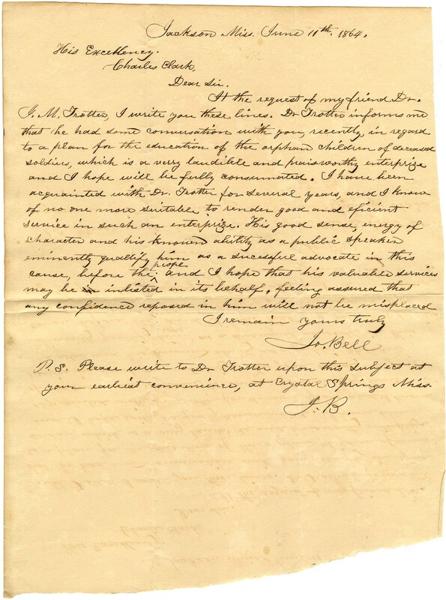 Jackson Miss. June 11th. 1864.
His Excellency.
Charles Clark,
Dear Sir.
At the request of my friend Dr.
J. M. Trotter, I write you these lines. Dr Trotter informs me
that he had some conversation with you, recently, in regard
to a plan for the education of the orphan children of deceased
soldiers, which is a very laudible and praisworthy enterprize
and I hope will be fully consumated. I have been
acquainted with Dr Trotter for several years, and I know
of no one more suitable to render good and eficient
service in such an enterprize. His good sense, energy of
character and his known ability as a public speaker
eminently qualify him as a sucessful advocate in this
cause, before the people and I hope that his valuable services
may be inlisted in its behalf, feeling assured that
any confidence reposed in him will not be misplaced
I remain yours truly
Jo. Bell
P. S. Please write to Dr Trotter upon this subject at
your earliest convenience, at Crystal Springs Miss.
J. B.